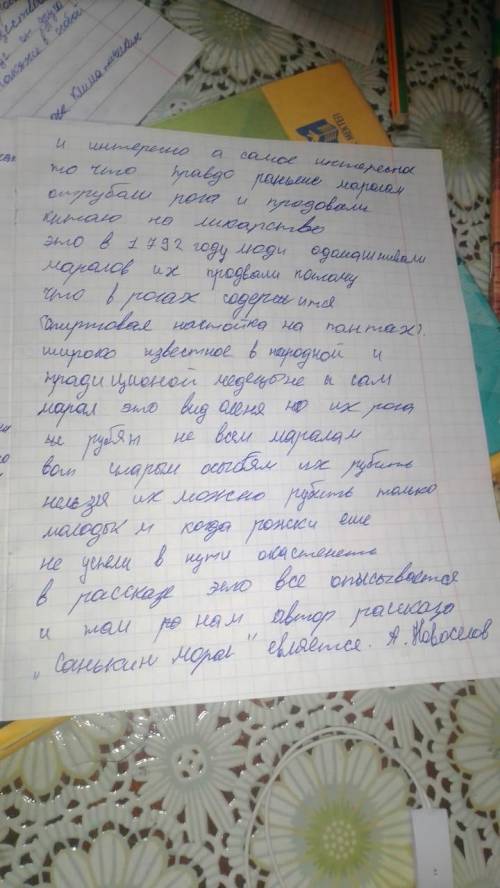 и интересно а самое интересное
то что правдо раньше маралам
отрубали рога и продовали
китаю на ликарство
это в 1792 году люди одомашнивали
маралов их продвали потому
что в рогах содержится
спиртовая настойка на пантах.
широко известное в народной и
традиционой медецыне и сам
марал это вид оленя но их рога
не рубят не всем маралам
вот старым осыбям их рубить
нельзя их можно рубить только
молодым когда рожки еше
не успели в кости окастенеть
в рассказе это все описывается
и там нам автор рассказа
"Санькин марал" евляется. А. Новоселов
МЕКТЕП